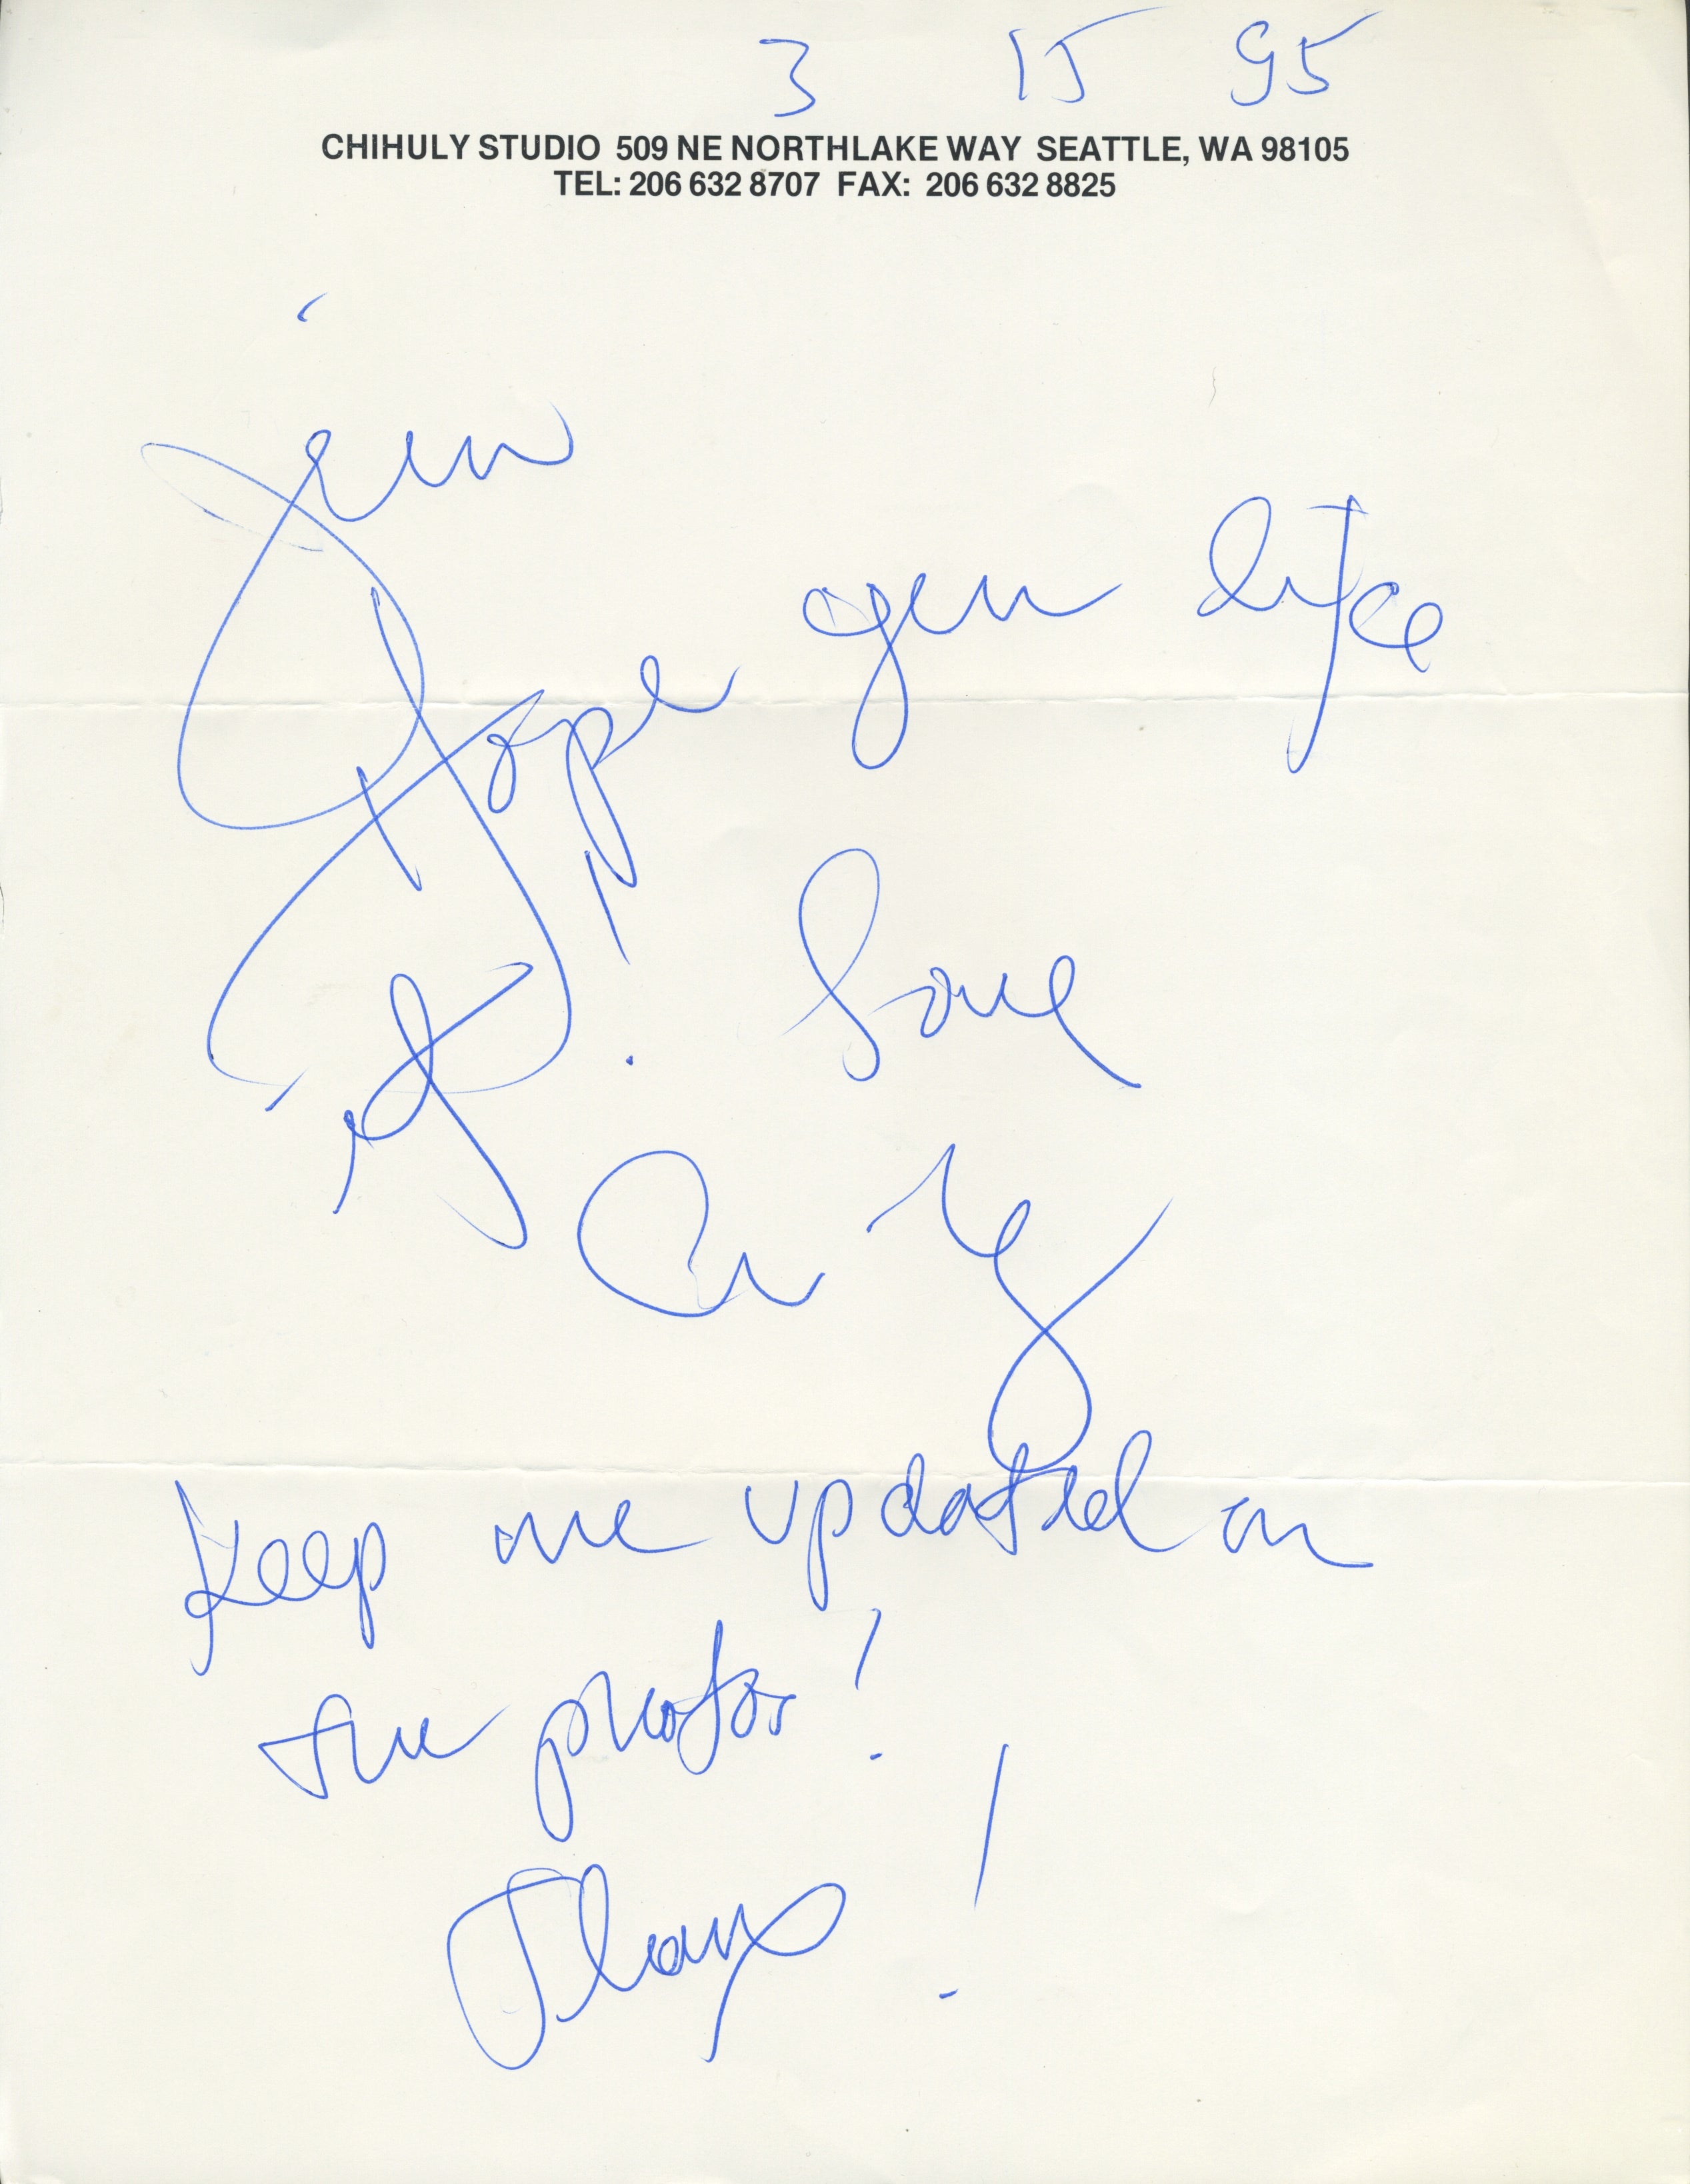 3 15 95
CHIHULY STUDIO 509 NE NORTHLAKE WAY SEATTLE, WA 98105
TEL: 206 632 8707 FAX: 206 632 8825
Jim
Hope you like
it! Love
Keep me updated on
the photos!
Thanx!